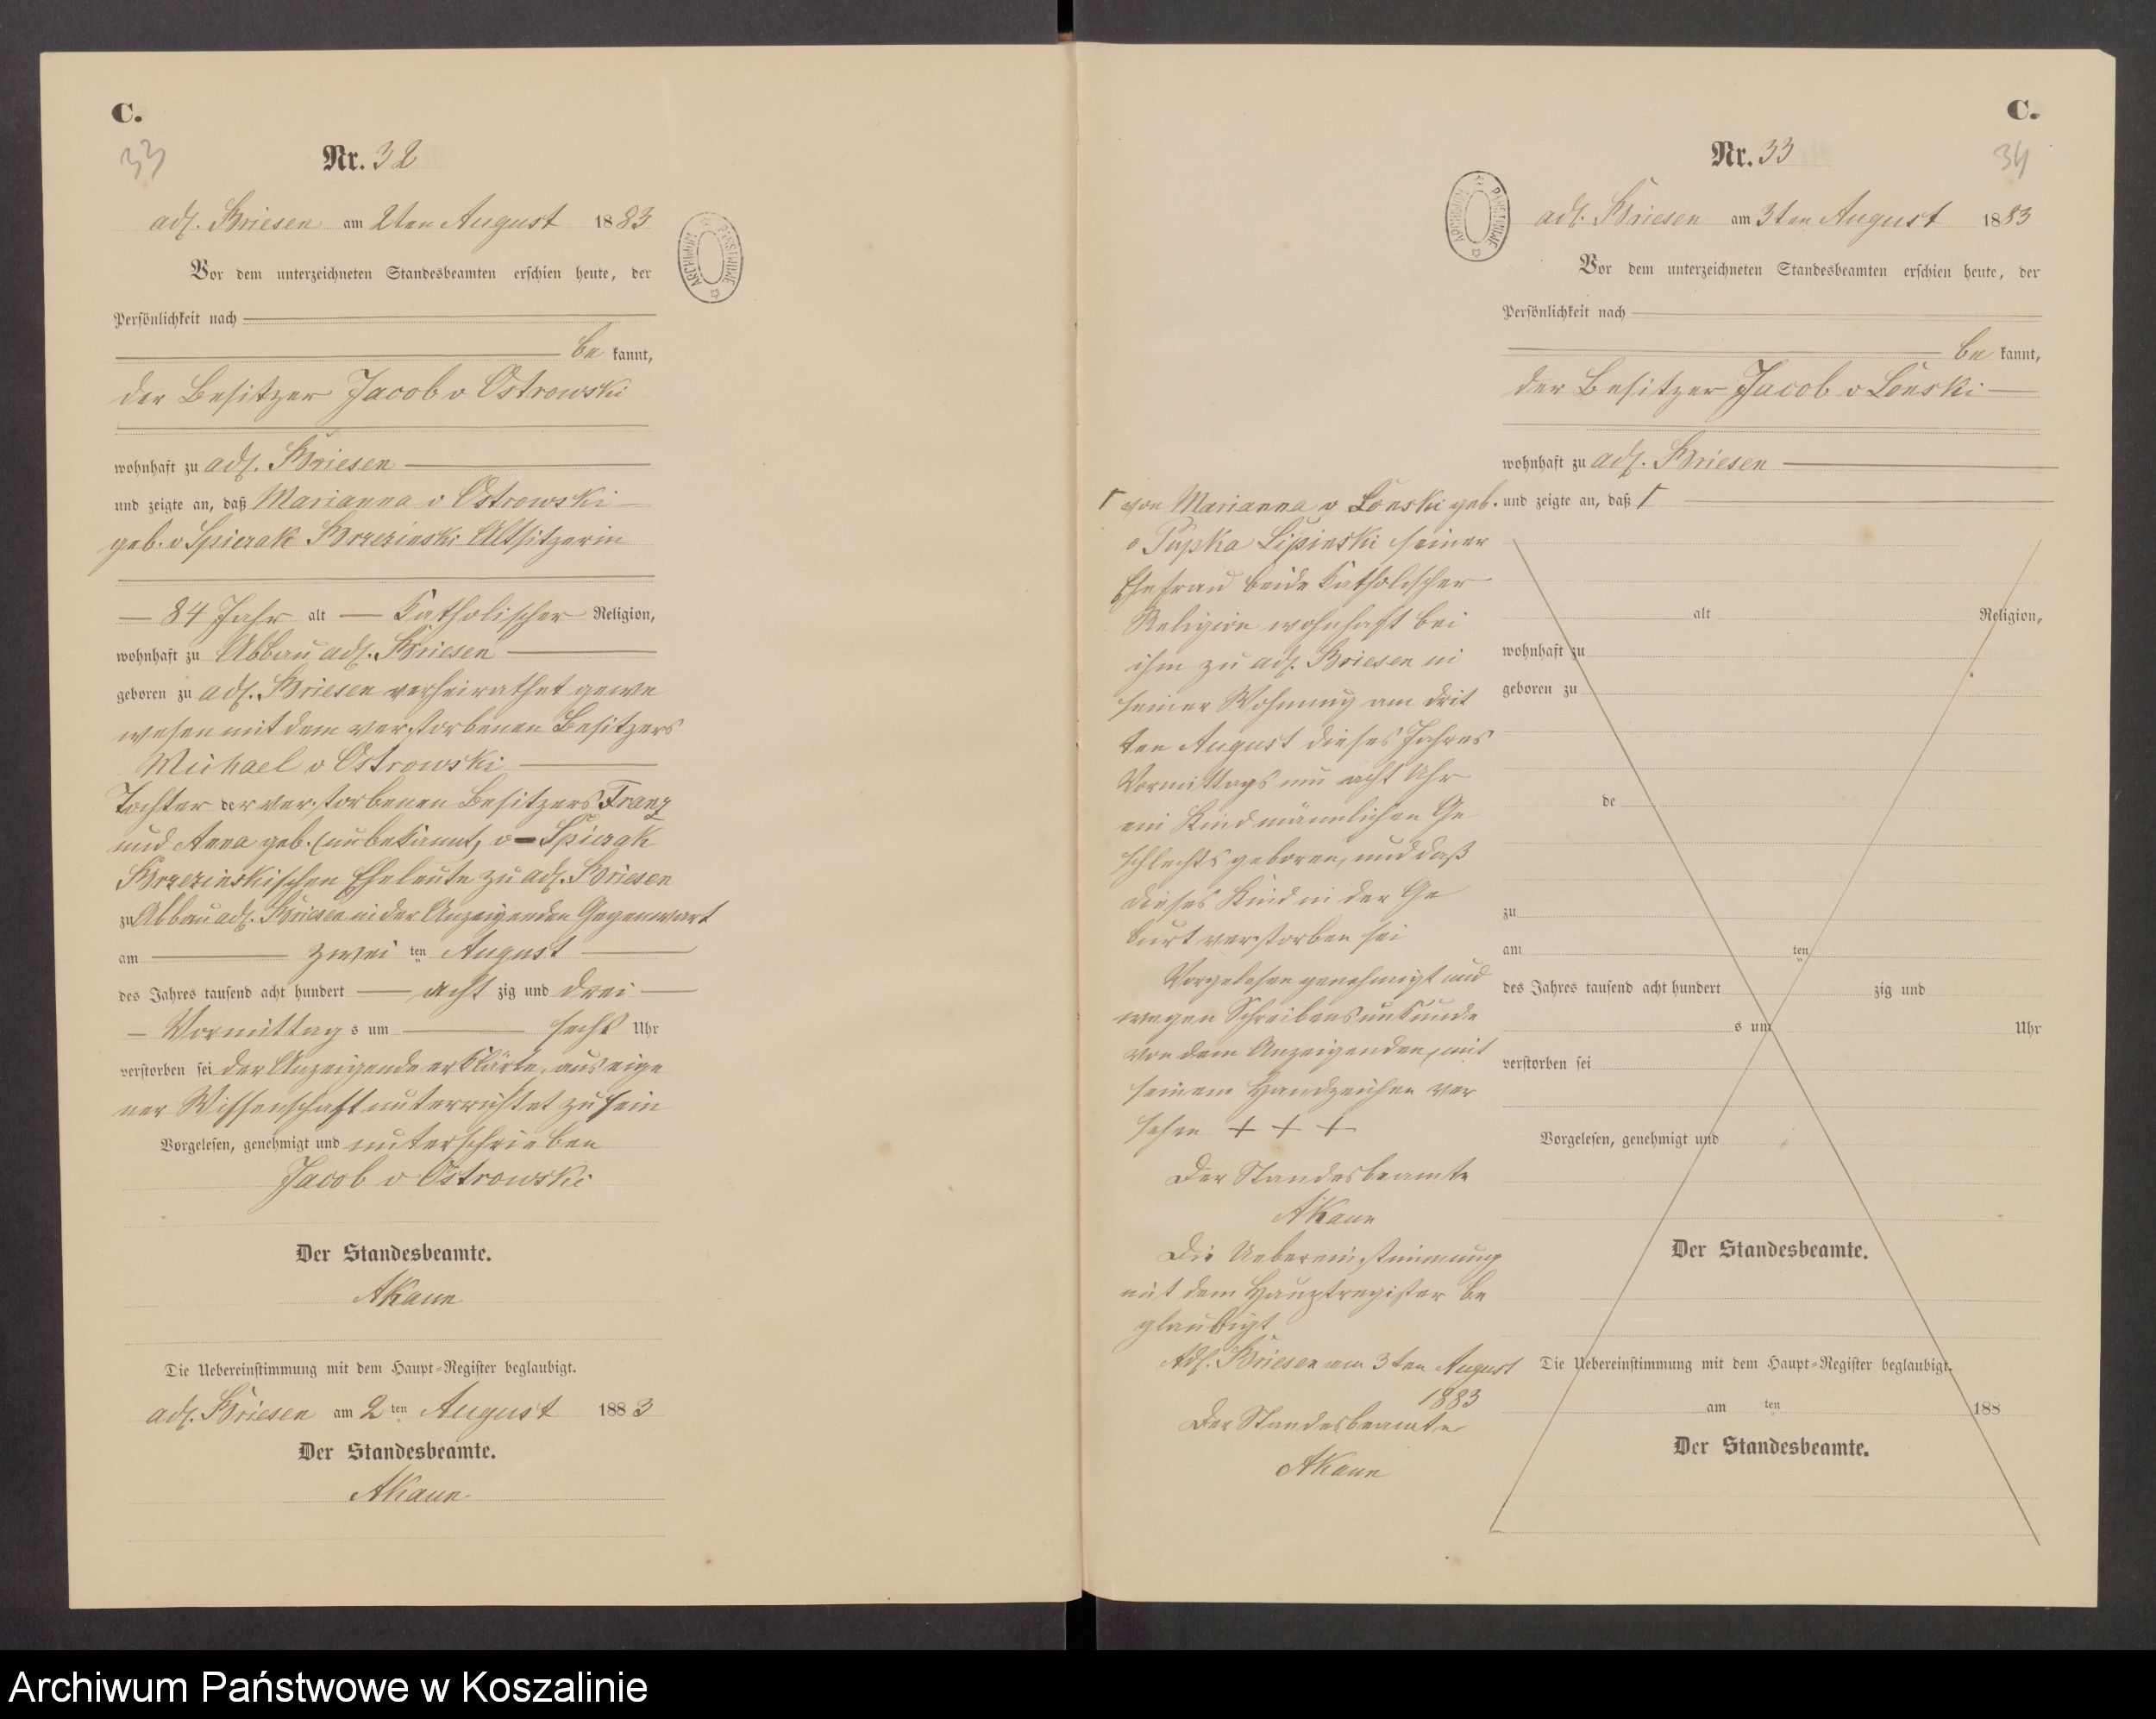 C.
33
Nr. 32
adl. Briesen am 2ten August 1883
Vor dem unterzeichneten Standesbeamten erschien heute, der
Persönlichkeit nach
be kannt,
der Besitzer Jacob v Ostrowski
wohnhaft zu adl. Briesen
und zeigte an, daß Marianna v Ostrowski
geb. v Spiczak Brzezinski Altsitzerin
84 Jahr alt Katholischer Religion,
wohnhaft zu Abbau adl. Briesen
geboren zu adl. Briesen verheirathet gewe
wesen mit dem verstorbenen Besitzers
Michael v Ostrowski
Tochter der verstorbenen Besitzers Franz
und Anna geb. (unbekannt) v Spiczak
Brzezinskischen Eheleute zu adl. Briesen
zu Abbau adl. Briesen in der Anzeigenden Gegenwart
am zwei ten August
des Jahres tausend acht hundert acht zig und drei
Vormittag s um sechs Uhr
verstorben sei der Anzeigende erklärte, aus eige
ner Wissenschaft unterrichtet zu sein
Vorgelesen, genehmigt und unterschrieben
Jacob v Ostrowski
Der Standesbeamte.
AKaun
Die Uebereinstimmung mit dem Haupt-Register beglaubigt.
adl. Briesen am 2 ten August 1883
Der Standesbeamte.
AKaun
ARCHIWUM PAŃSTWOWE
C.
34
Nr. 33
ARCHIWUM PAŃSTWOWE
adl. Briesen am 3ten August 1883
Vor dem unterzeichneten Standesbeamten erschien heute, der
Persönlichkeit nach
be kannt,
der Besitzer Jacob v Lonski
wohnhaft zu adl. Briesen
und zeigte an, daß Γ
Γ von Marianna v Lonski geb.
v Pupka Lipinski seiner
Ehefrau beide Katholischer
Religion wohnhaft bei
ihm zu adl. Briesen in
seiner Wohnung am drit
ten August dieses Jahres
Vormittags um acht Uhr
ein Kind männlichen Ge
schlechts geboren, und daß
dieses Kind in der Ge
burt verstorben sei
Vorgelesen genehmigt und
wegen Schreibensunkunde
von dem Anzeigenden, mit
seinem Handzeichen ver
sehen + + +
Der Standesbeamte
AKaun
Die Uebereinstimmung
mit dem Hauptregister be
glaubigt
Adl. Briesen am 3ten August
1883
Der Standesbeamte
AKaun
alt Religion,
wohnhaft zu
geboren zu
de
zu
am ten
des Jahres tausend acht hundert zig und
s um Uhr
verstorben sei
Vorgelesen, genehmigt und
Der Standesbeamte.
Die Uebereinstimmung mit dem Haupt-Register beglaubigt.
am ten 188
Der Standesbeamte.
Archiwum Państwowe w Koszalinie